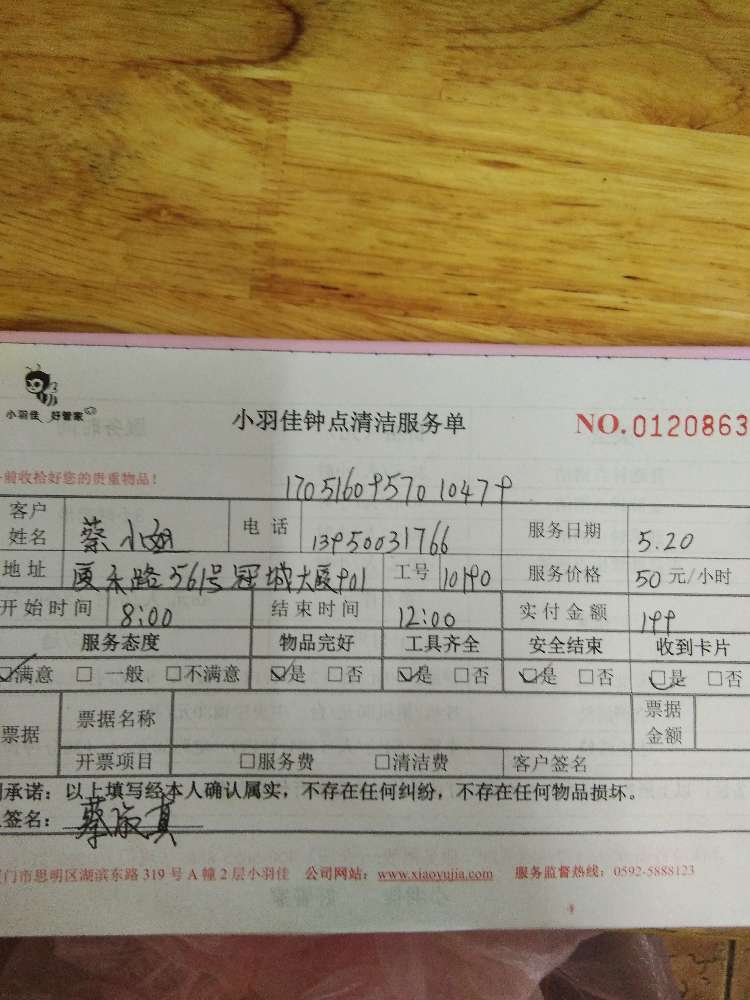 小羽佳 好管家
小羽佳钟点清洁服务单
NO.0120863
前收拾好您的贵重物品!
客户姓名 蔡小姐 电话 13950031766 服务日期 5.20
地址 厦禾路561号冠城大厦901 工号 10190 服务价格 50元/小时
开始时间 8:00 结束时间 12:00 实付金额 199
服务态度 物品完好 工具齐全 安全结束 收到卡片
☑满意 □一般 □不满意 ☑是 □否 ☑是 □否 ☑是 □否 ☑是 □否
票据 票据名称 票据金额
开票项目 □服务费 □清洁费 客户签名
承诺:以上填写经本人确认属实,不存在任何纠纷,不存在任何物品损坏。
签名: 蔡淑真
门市思明区湖滨东路319号A幢2层小羽佳 公司网站:www.xiaoyujia.com 服务监督热线:0592-5888123